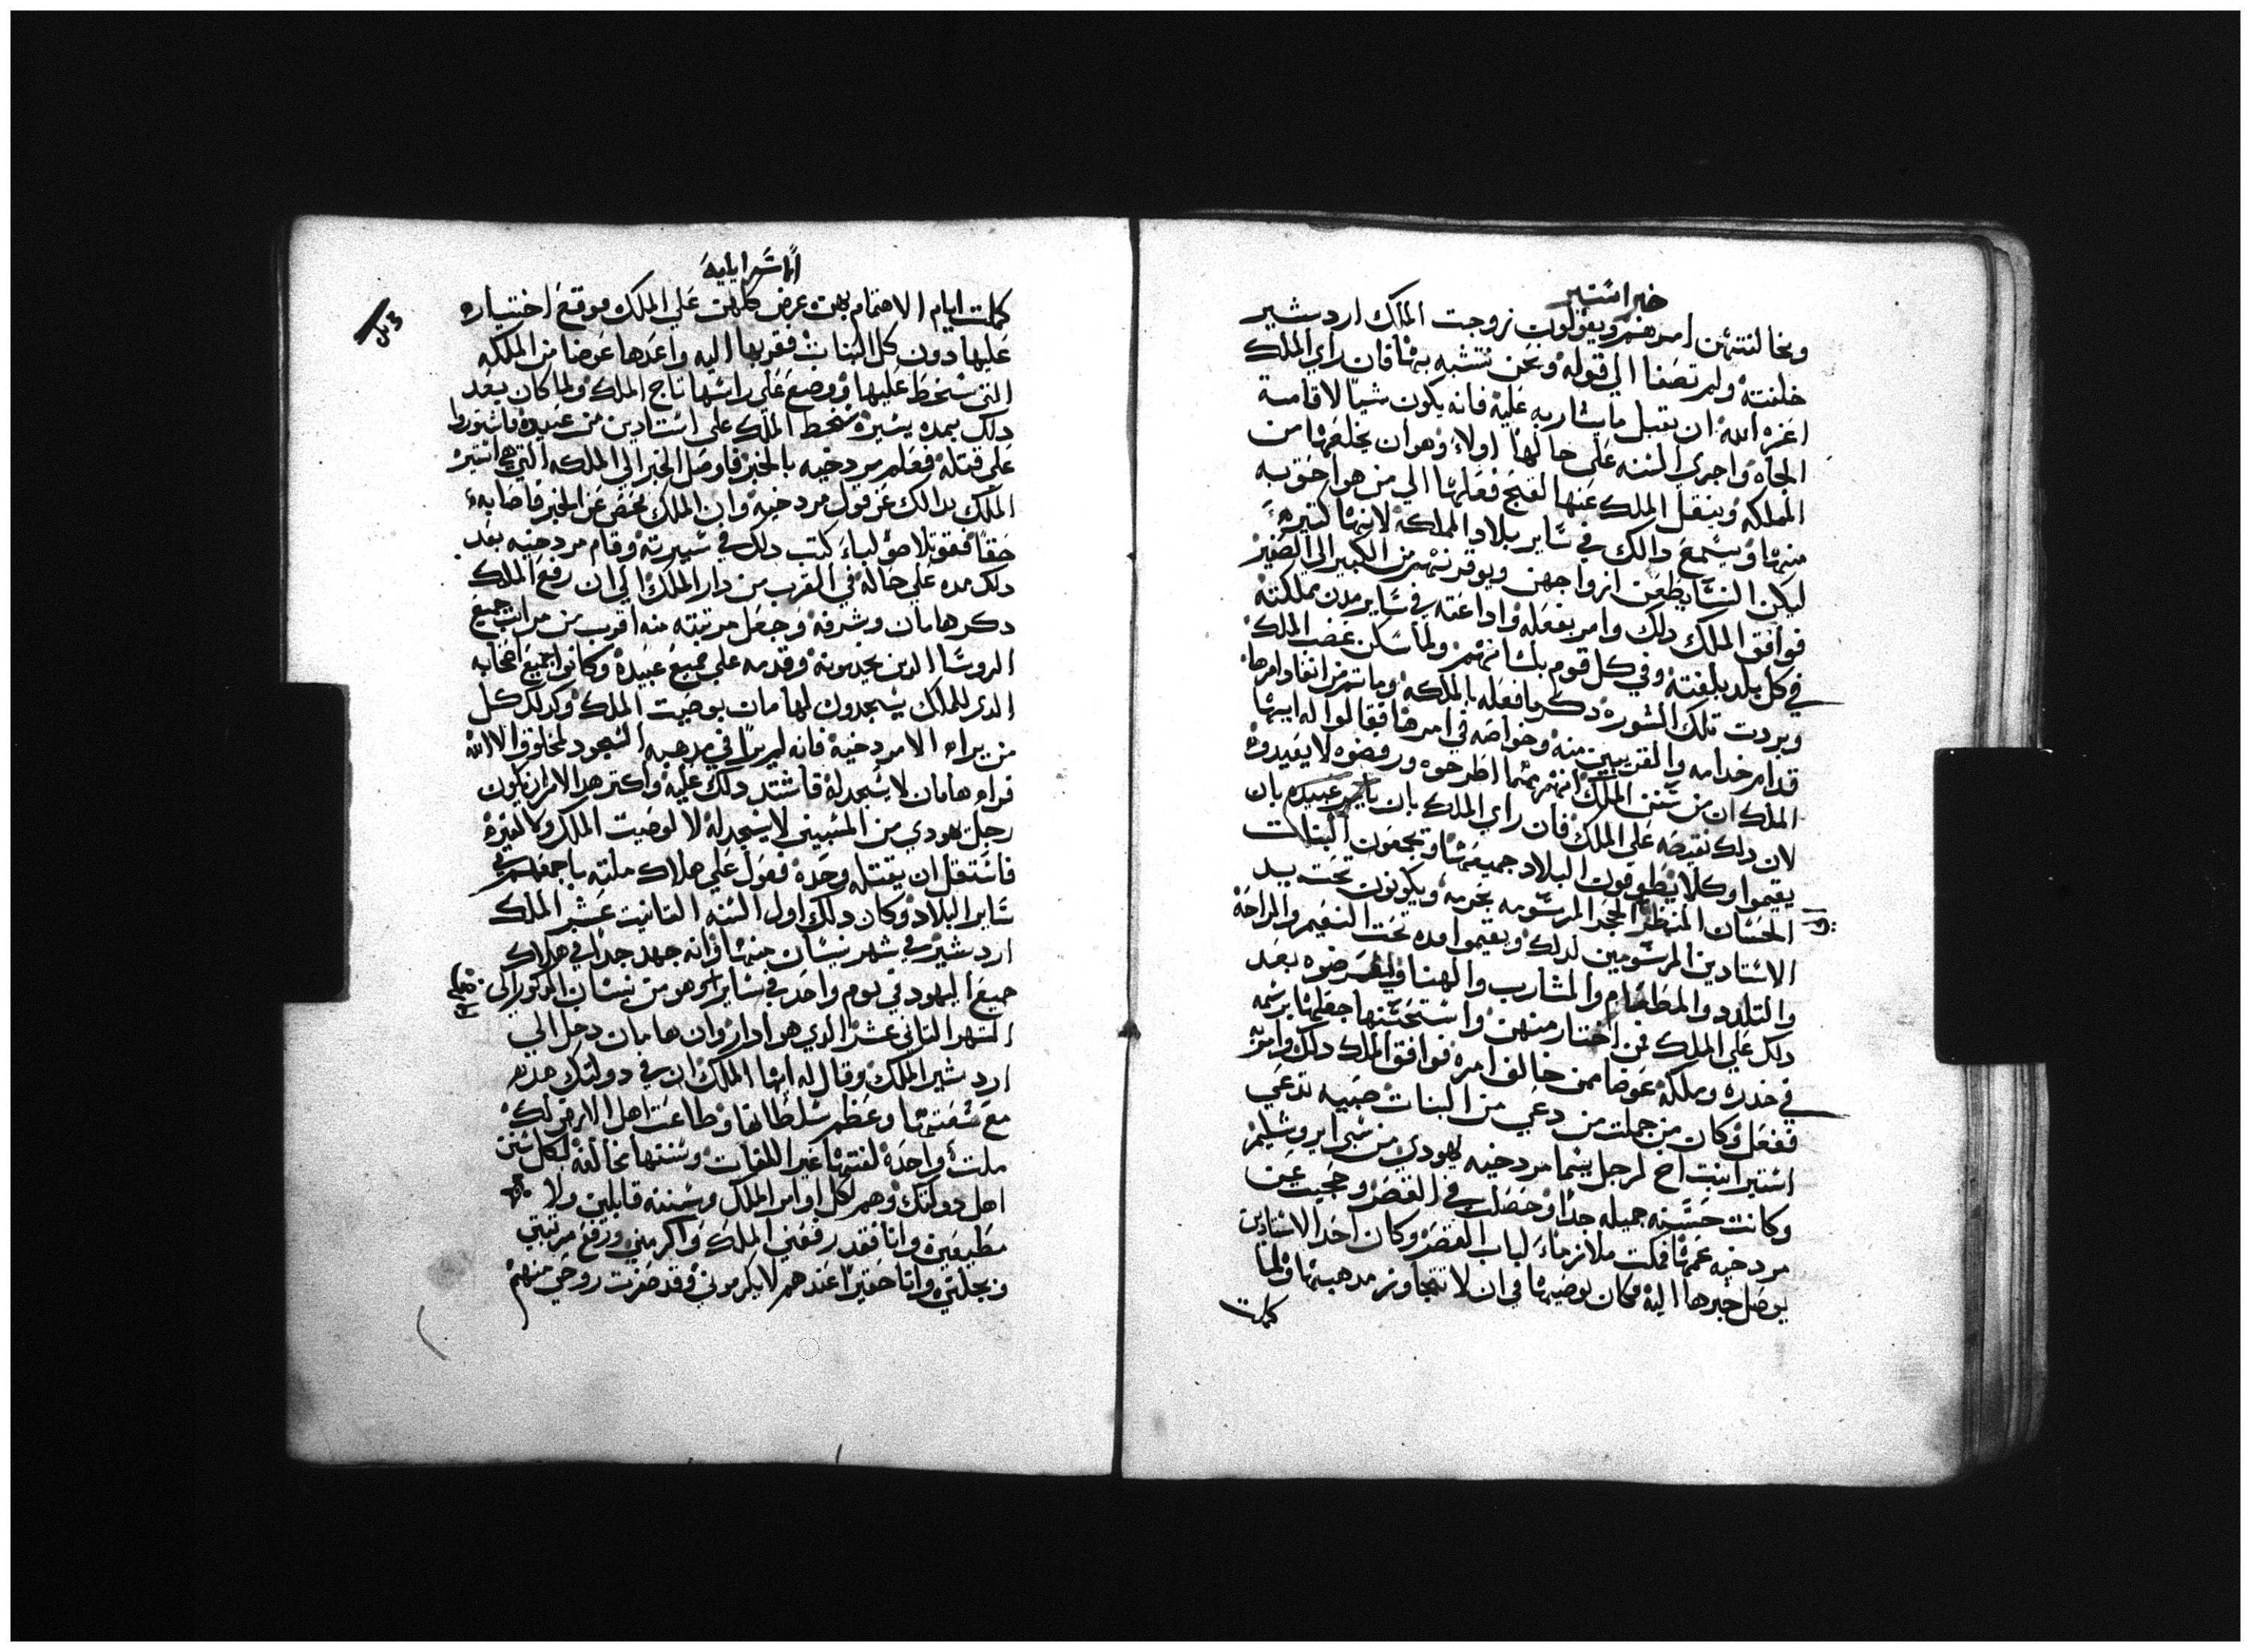 خبر استير
ومخالفتهن امرهم ويقولون زوجت الملك اردشير
خلفته ولم تصغا الي قوله ونحن نتشبه بها فان راي الملك
اعزه الله ان يقبل ما يشار به عليه فانه يكون شيا لاقامة
الجاه واجري السنه علي حالها اولا وهو ان يخلعها من
المملكه وينقل الملك عنها لقبح فعلها الي من هو احق به
منها ويسمع دالك في ساير بلاد المملكه لانها كتيره
ليكن النسا يطعن ازواجهن ويوقرنهم من الكبير الي الصغير
فوافق الملك دلك وامر بفعله واداعته في ساير مدن مملكته
في كل بلد بلغته وفي كل قوم بلسانهم ولما سكن غضب الملك
وبردت تلك السوره دكر ما فعله بالملكه وما تم من انفاد امرها
قدام خدامه والمقربين منه وخواصه في امرها فقالوا له ايها
الملك ان من سنن الملك انهم مهما اطرحوه ورفضوه لا يعيدوه
لان دلك نقيصه علي الملك فان راي الملك بان يامر عبيده بان
يقيموا وكلا يطوفون البلاد جميعها ويجمعون البنات
الحسان المنظر الحجر المرسومه بخدمه ويكونون تحت يد
الاستادين المرسومين لدلك ويقيموا مده تحت النعيم والراحه
والتلدد والمطعام والمشارب والهنا وليعرضوه بعد
دلك علي الملك فمن اختار منهن واستحسنها جعلها برسمه
في خدره وملكه عوضا ممن خالف امره فوافق الملك دلك وامر به
ففعل وكان من جملت من دعي من البنات صبيه تدعي
استير ابنت اخ لرجل يسما مردخيه يهودي من سبي ايروشليم
وكانت حسنه جميله جدا وحصلت في القصر وحجبت عن
مردخيه عمها فمكت ملازماء لباب القصر وكان احد الاستادين
يوصل خبرها اليه فكان يوصيها في ان لا تتجاوز مدهبها ولما
كملت
اسراييليه
كملت ايام الاهتمام بهن عرض كلهن علي الملك فوقع اختياره
عليها دون كل البنات فقربها اليه واعدها عوضا من الملكه
التي سخط عليها ووضع علي راسها تاج الملك ولما كان بعد
دلك بمده يسيره سخط الملك علي استادين من عبيده فاشتوروا
علي قتله فعلم مردخيه بالخبر فاوصل الخبر الي الملكه التي هي استير
الملك بدالك عن قول مردخيه وان الملك فحص عن الخبر فاصابه
حقا فقوتلا صولباء كتب دلك في سيرته وقام مردخيه بعد
دلك مده علي حاله في القرب من دار الملك الي ان رفع الملك
دكر هامان وشرفه وجعل مرتبته منه اقرب من مراتب جميع
الروسا الدين يخدمونه وقدمه علي جميع عبيده وكانوا جميع اصحابه
الدي للملك يسجدون لهامان بوصيت الملك وكدلك كل
من يراه الا مردخيه فانه لم يرا في مدهبه السجود لمخلوق الا الله
فراه هامان لا يسجد له فاشتد دلك عليه واكتر هدا الامر ان يكون
رجل يهودي من المسبيين لا يسجد له لا لوصيت الملك ولا لغيره
فاستقل ان يقتله وحده فعول علي هلاك ملته باجمعهم في
ساير البلاد وكان دلك اول السنه التانيت عشر الملك
اردشير في شهر نيسان منها وانه جهد جدا في هلاك
جميع اليهود في يوم واحد في ساير وهو من نيسان المدكور الي
الشهر التاني عشر الدي هو ادار وان هامان دخل الي
اردشير الملك وقال له ايها الملك ان في دولتك هده
مع سعتها وعظم سلطانها وطاعت اهل الارض لك
ملت واحده لغتها غير اللغات وسننها مخالفه لكل سنن
اهل دولتك وهم لكل اوامر الملك وسننه قابلين ولا
مطيعين وانا فقد رفعني الملك واكرمني ورفع مرتبتي
وبجلني وانا حقيرا عندهم لا يكرموني وقد ضرت روحي منهم